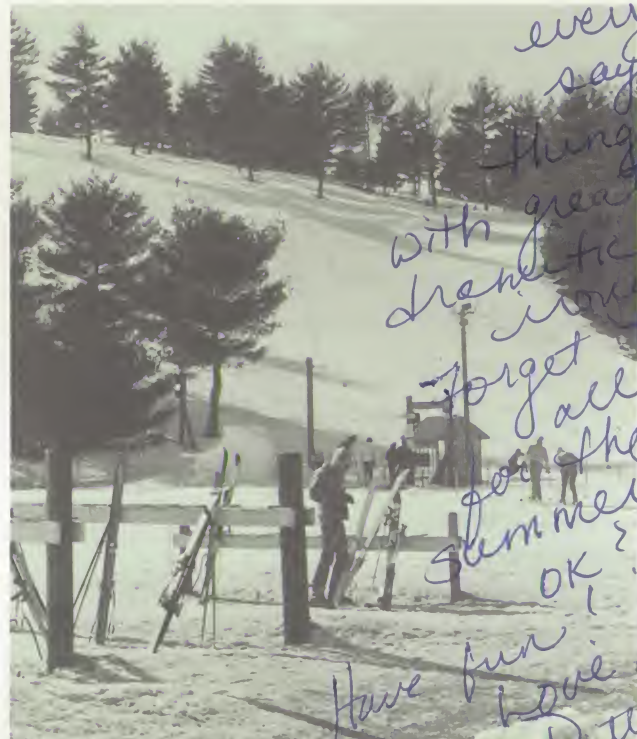 every
say
with great
dramatic
forget
all
for the
summer
OK?
Have fun!
Love